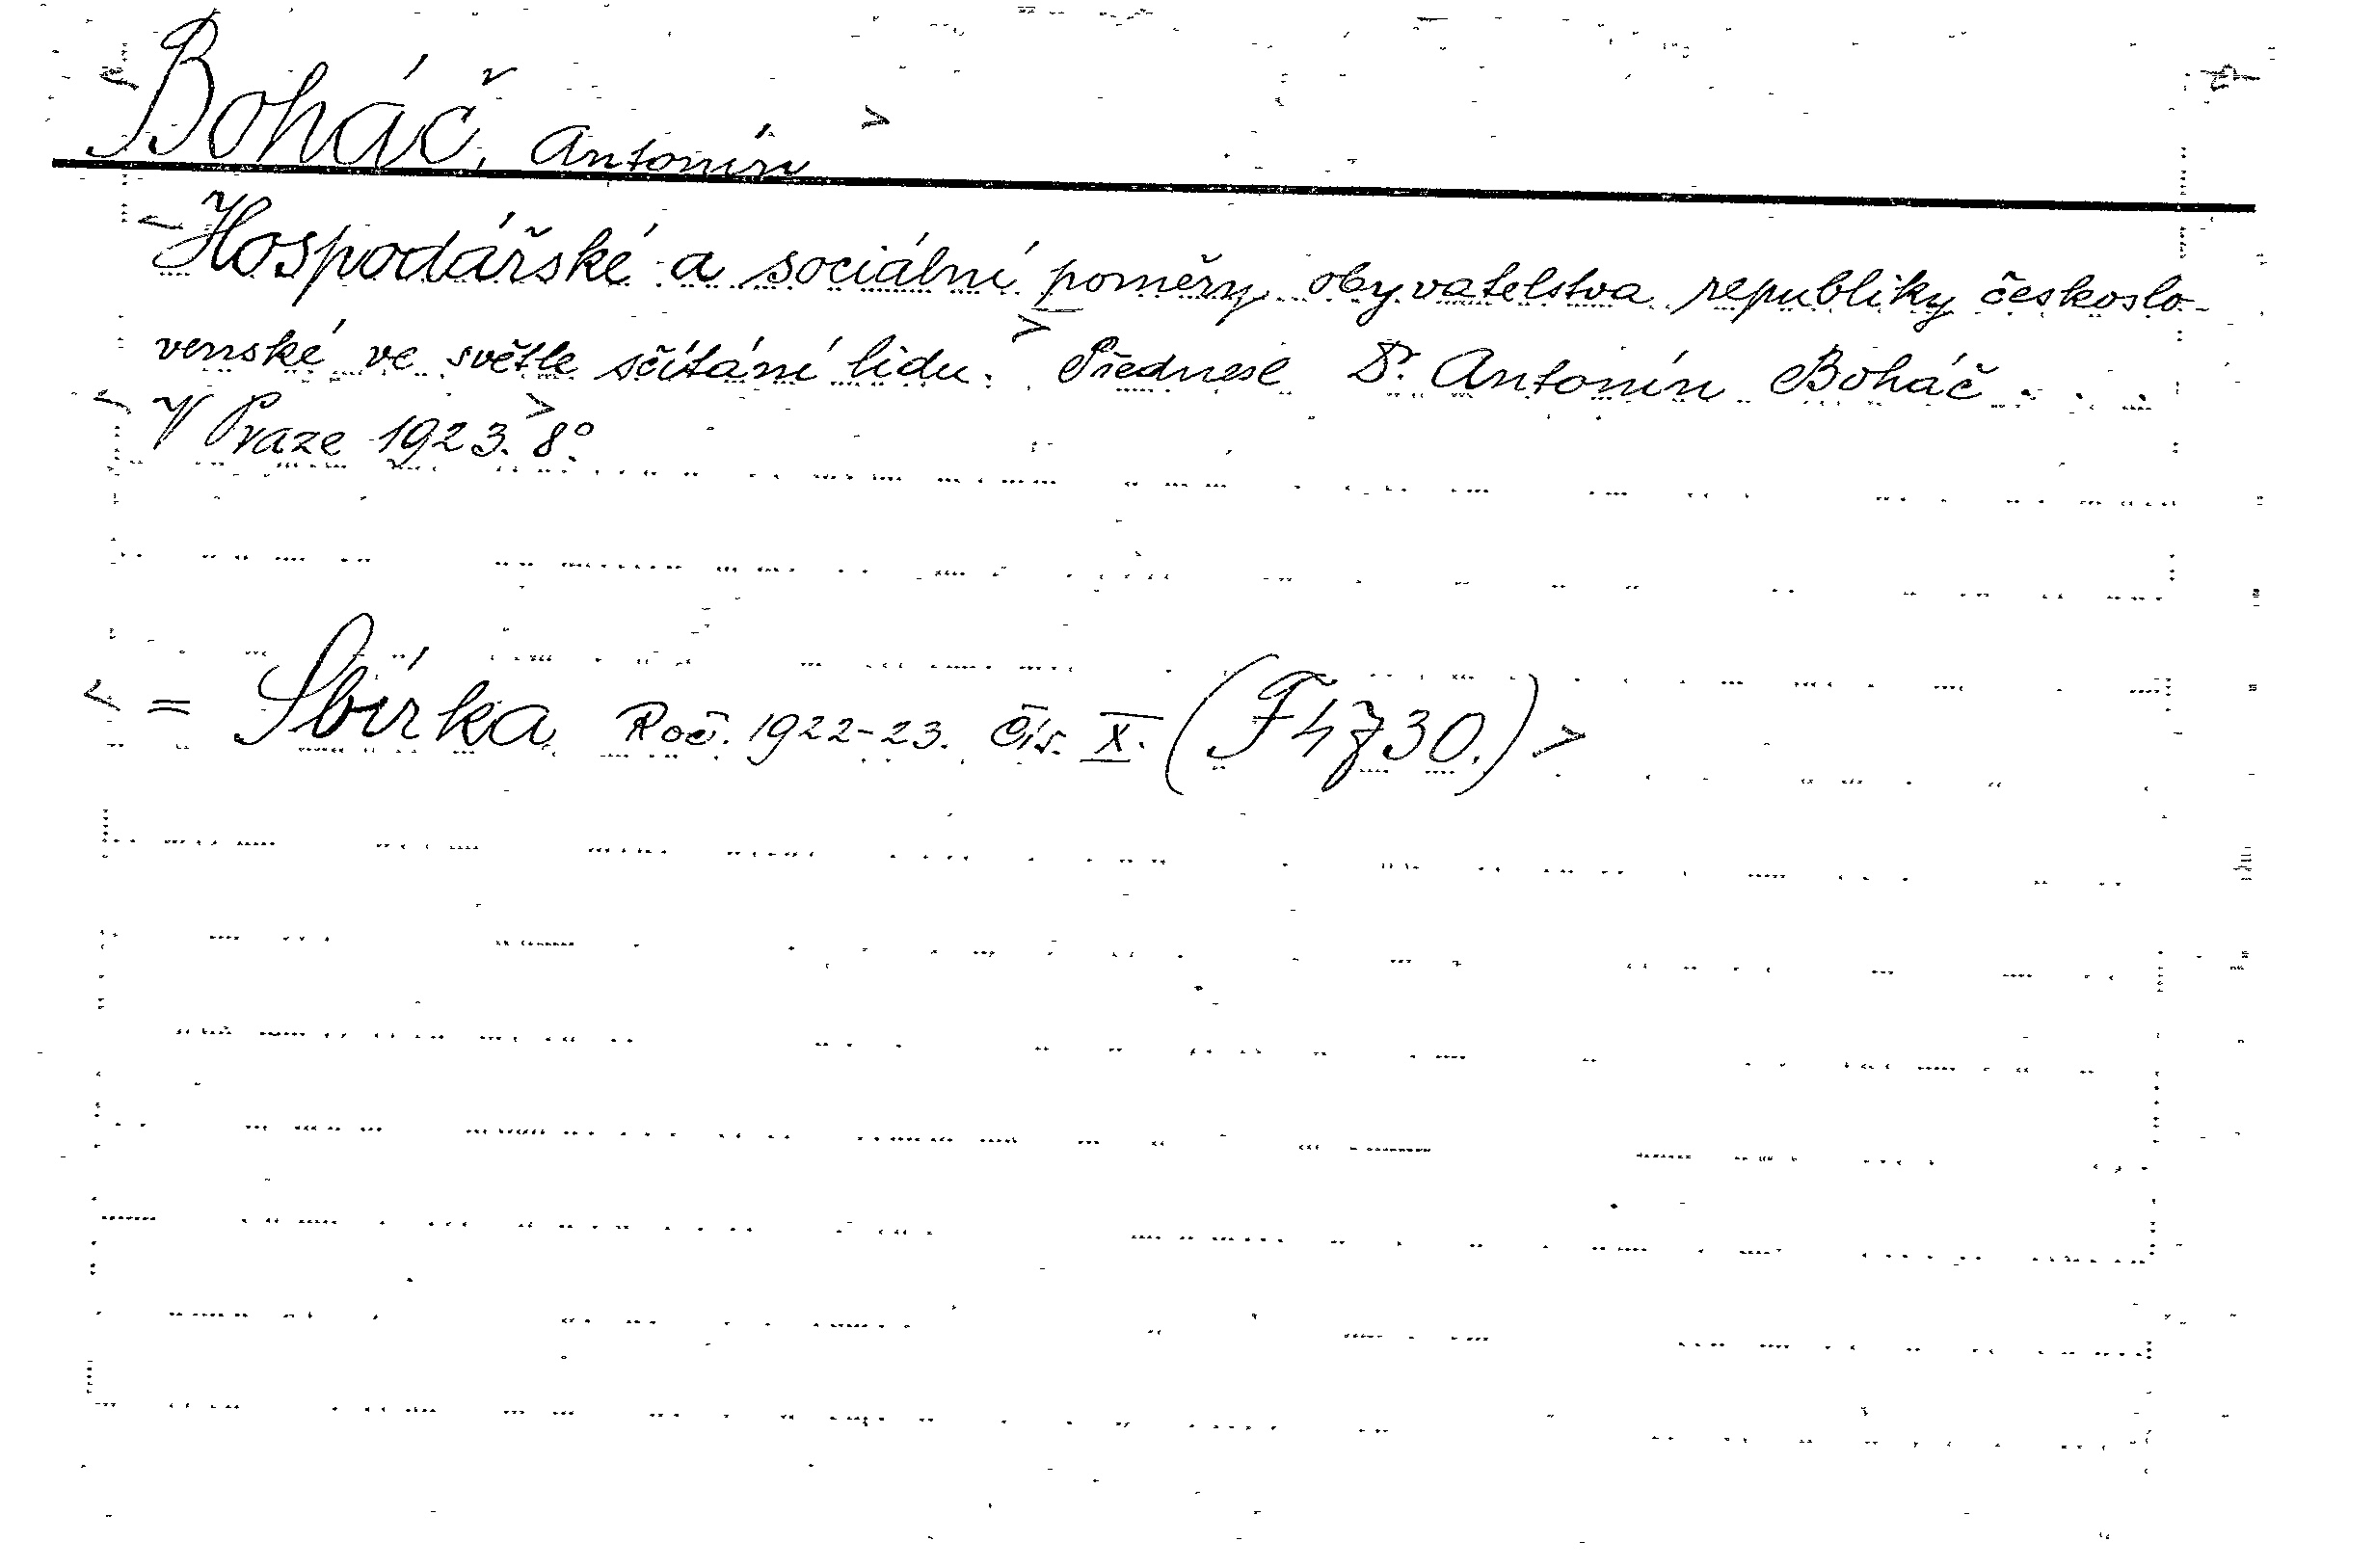 Boháč, Antonín >
Hospodářské a sociální poměry obyvatelstva republiky českoslo-
venské ve světle sčítání lidu. > Přednesl Dr. Antonín Boháč . . .
V Praze 1923. > 8°.
< = Sbírka. Roč. 1922-23. Čís. X. (F 4730.) >